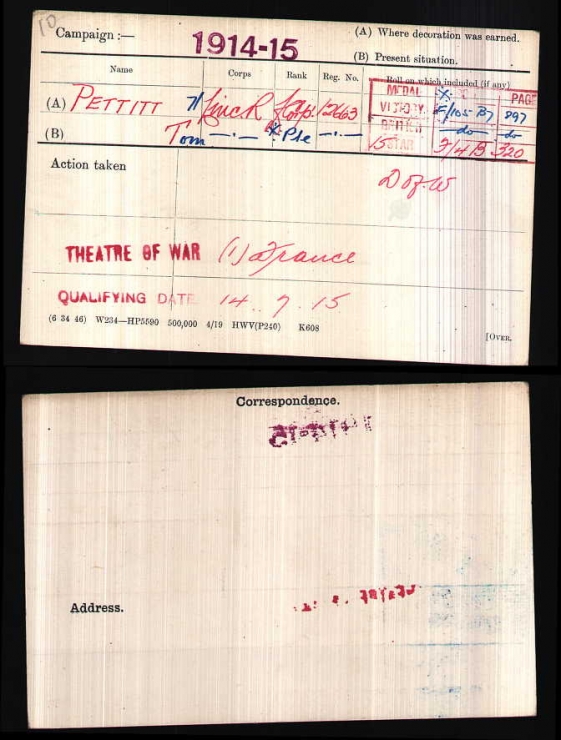 10
Campaign :—
1914-15
(A) Where decoration was earned.
(B) Present situation.
Name Corps Rank Reg. No. Roll on which included (if any)
MEDAL PAGE
(A) PETTITT 7/ Linc R 12663 VICTORY F/105 B7 897
(B) Tom —·— x Pte —·— BRITISH —do— do
15 STAR F/4 B 320
Action taken
D of W
THEATRE OF WAR (1) France
QUALIFYING DATE 14. 7. 15
(6 34 46) W234—HP5590 500,000 4/19 HWV(P240) K608
[OVER.
Correspondence.
Address.